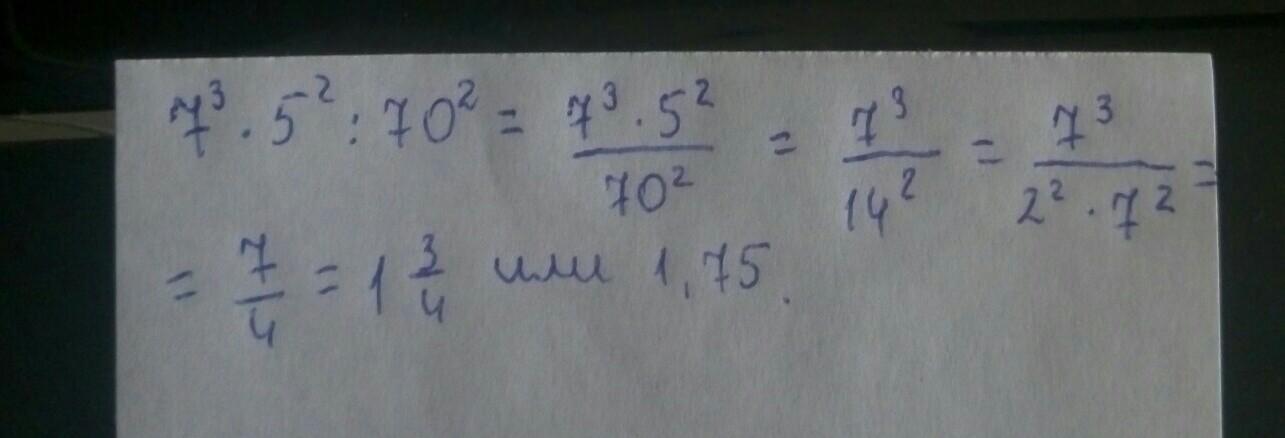 7³ · 5² : 70² = 7³ · 5² / 70² = 7³ / 14² = 7³ / 2² · 7² =
= 7/4 = 1 3/4 или 1,75.